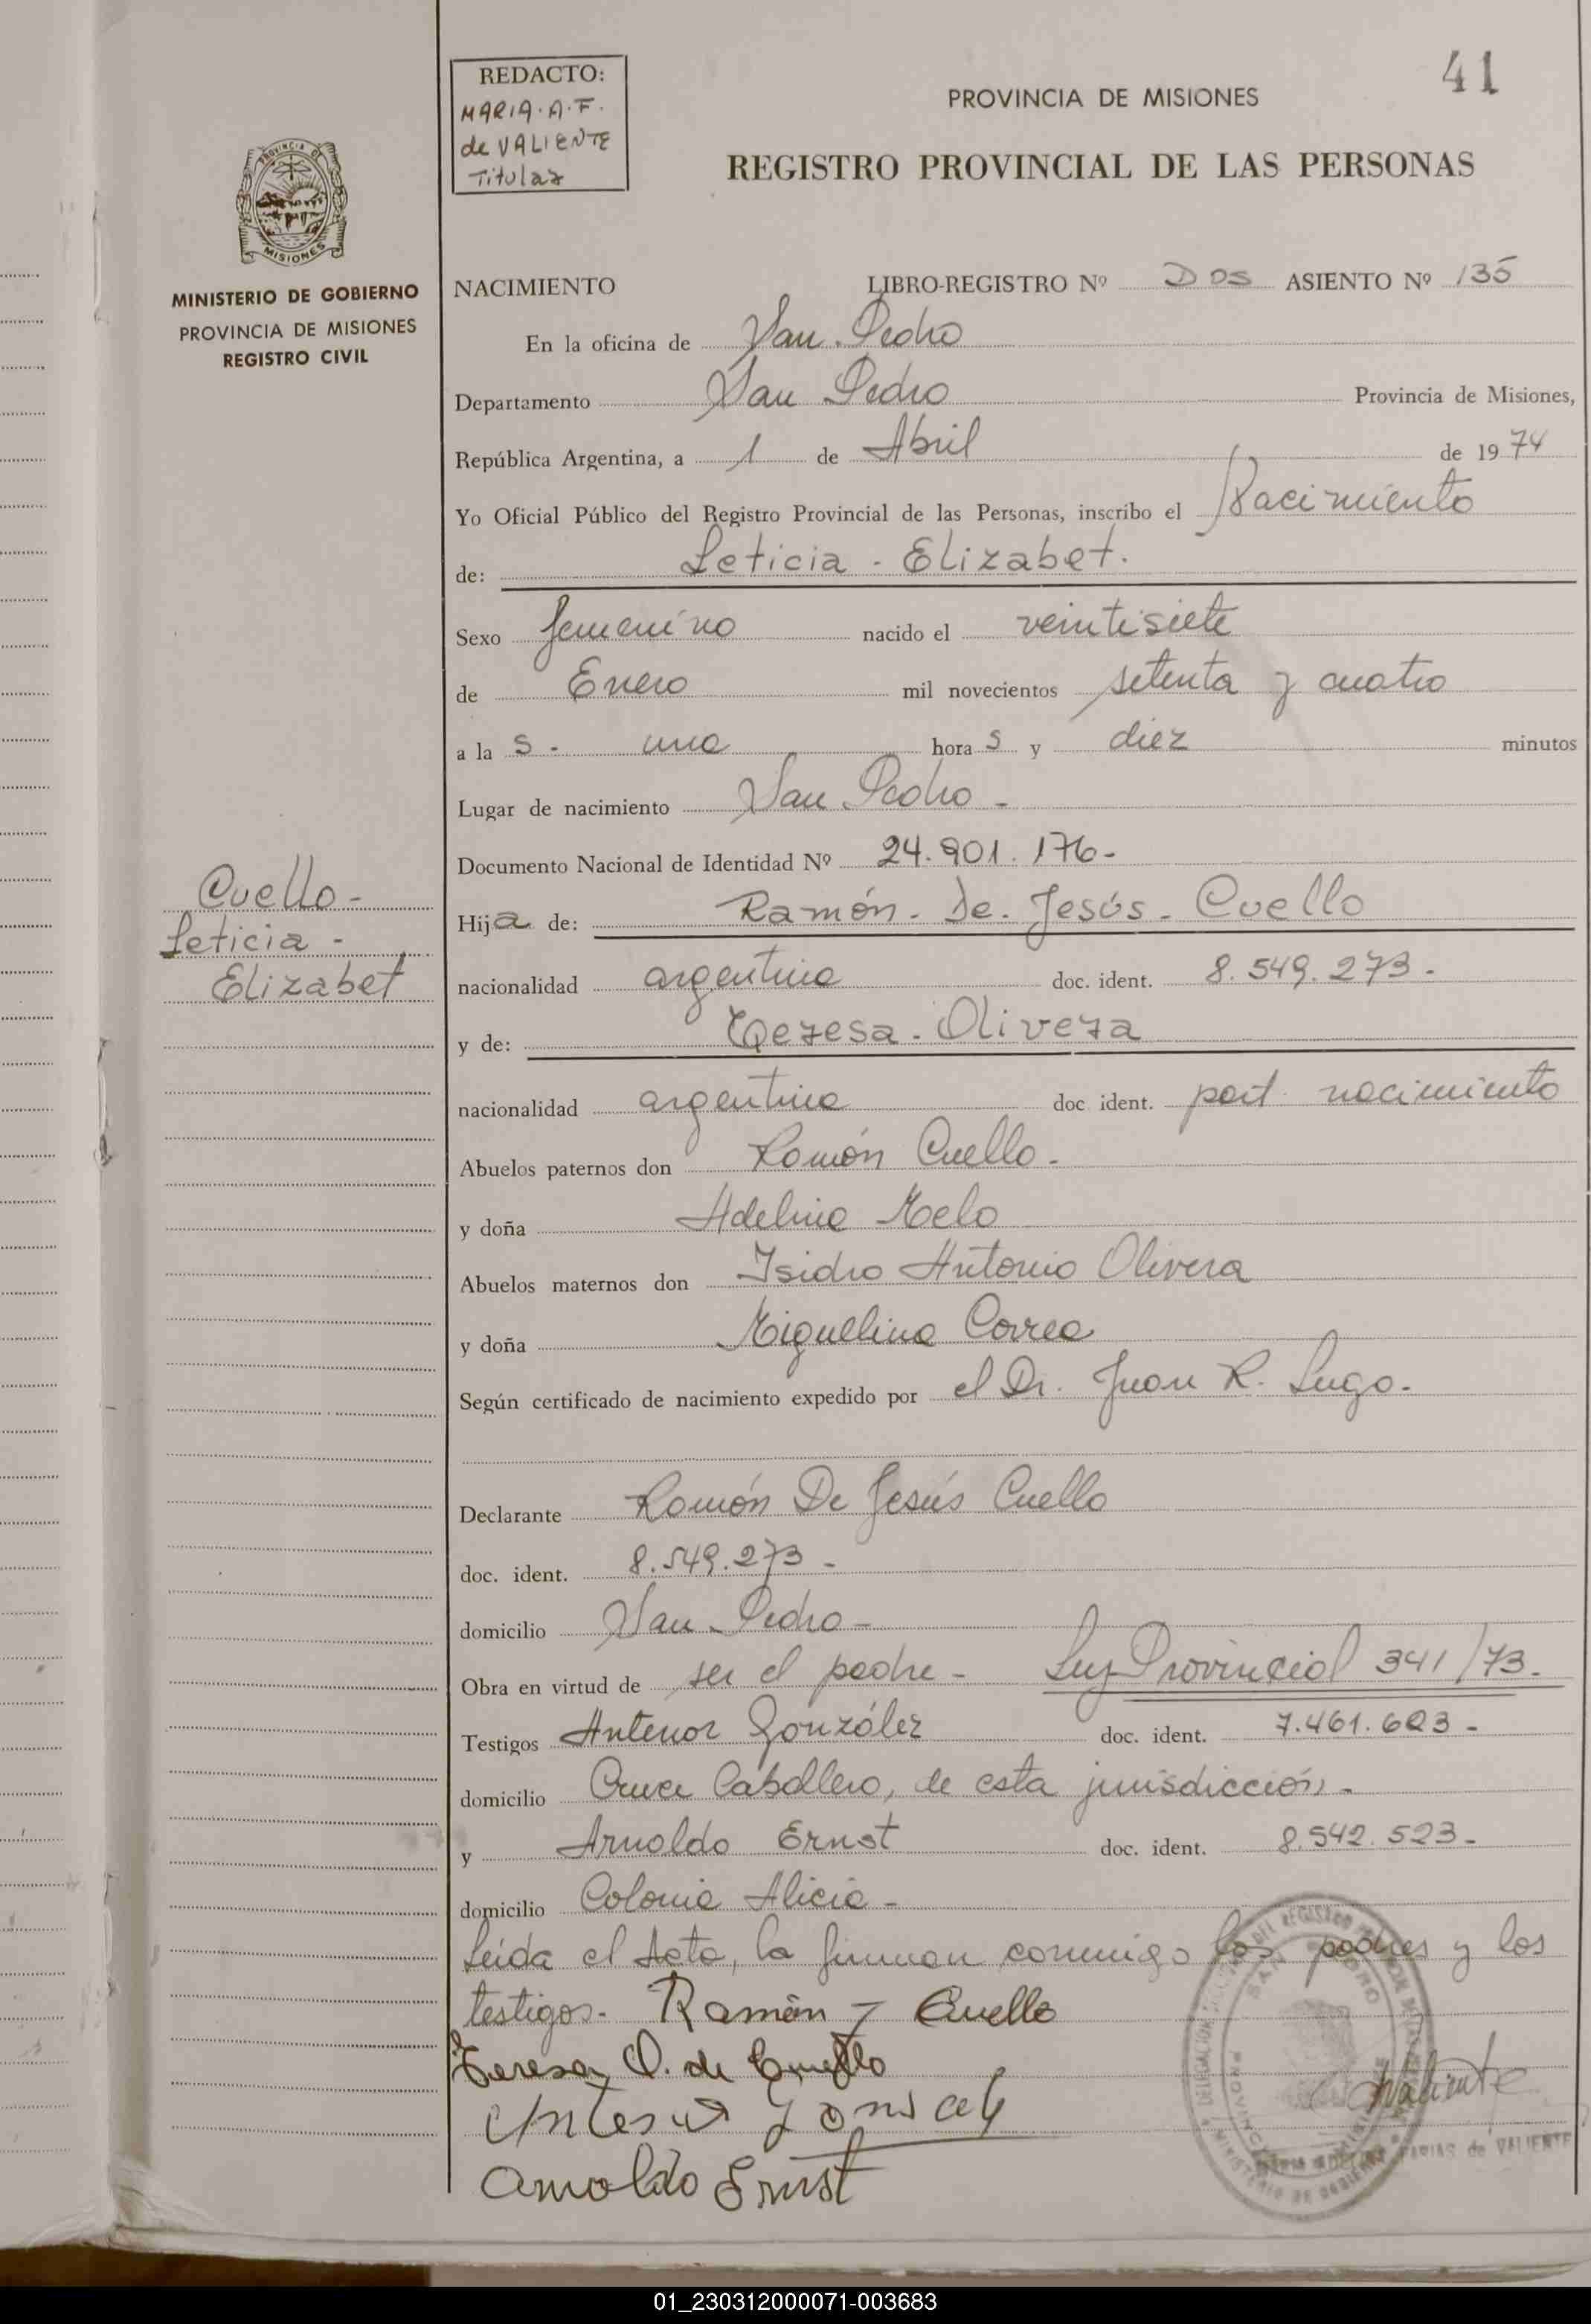 41
REDACTO:
MARIA. A. F.
de VALIENTE
Titular
PROVINCIA DE MISIONES
REGISTRO PROVINCIAL DE LAS PERSONAS
PROVINCIA DE
MISIONES
MINISTERIO DE GOBIERNO
PROVINCIA DE MISIONES
REGISTRO CIVIL
NACIMIENTO LIBRO-REGISTRO Nº Dos ASIENTO Nº 135
En la oficina de San Pedro
Departamento San Pedro Provincia de Misiones,
República Argentina, a 1 de Abril de 1974
Yo Oficial Público del Registro Provincial de las Personas, inscribo el Nacimiento
de: Leticia - Elizabet.
Sexo femenino nacido el veintisiete
de Enero mil novecientos setenta y cuatro
a la s - una hora s y diez minutos
Lugar de nacimiento San Pedro -
Documento Nacional de Identidad Nº 24.901.176-
Cuello -
Leticia -
Elizabet
Hija de: Ramón - De - Jesús - Cuello
nacionalidad argentina doc. ident. 8.549.273 -
y de: Teresa - Olivera
nacionalidad argentina doc ident. part. nacimiento
Abuelos paternos don Ramón Cuello -
y doña Adelina Melo
Abuelos maternos don Isidro Antonio Olivera
y doña Miguelina Correa
Según certificado de nacimiento expedido por el Dr. Juan R. Lugo.
Declarante Ramón De Jesús Cuello
doc. ident. 8.549.273 -
domicilio San Pedro -
Obra en virtud de ser el padre - Ley Provincial 341/73.
Testigos Antenor González doc. ident. 7.461.603 -
domicilio Cruce Caballero, de esta jurisdicción -
y Arnoldo Ernst doc. ident. 8.542.523 -
domicilio Colonia Alicia -
Leída el Acta, la firman conmigo los padres y los
testigos - Ramón J Cuello
Teresa O. de Cuello
Arnoldo Ernst
Valiente
FARIAS de VALIENTE
01_230312000071-003683